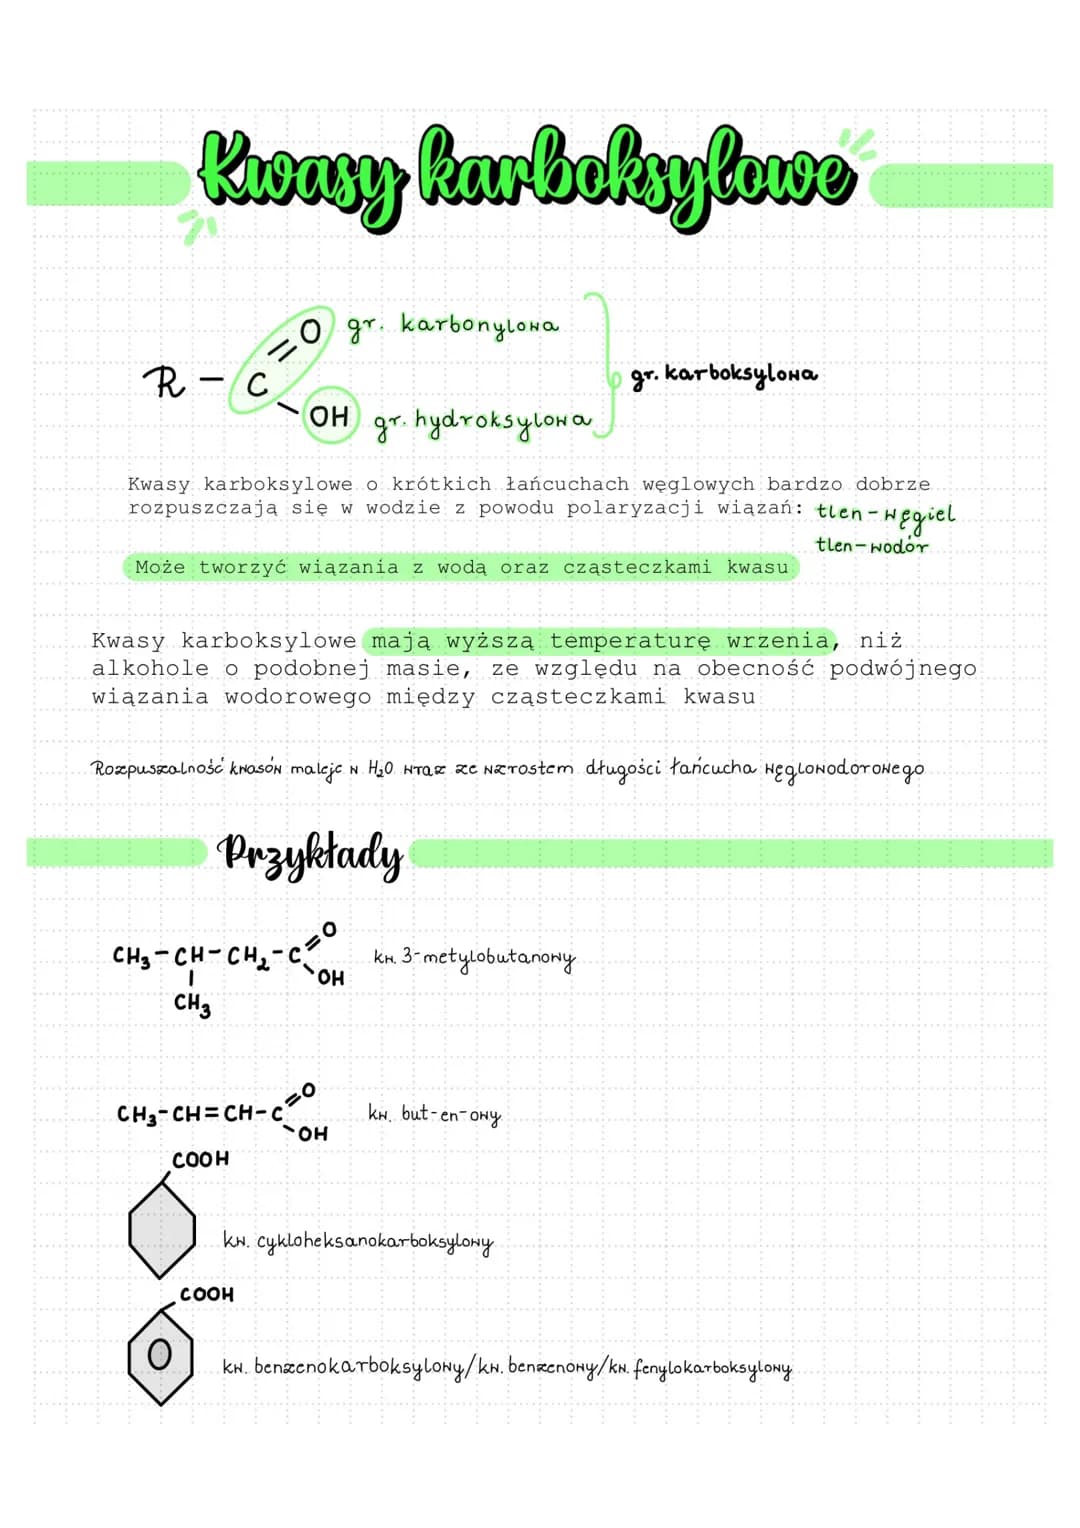 Kwasy karboksylowe
O gr. karbonylowa
R - C
gr. karboksylowa
OH gr. hydroksylowa
Kwasy karboksylowe o krótkich łańcuchach węglowych bardzo dobrze
rozpuszczają się w wodzie z powodu polaryzacji wiązań: tlen-węgiel
tlen-wodór
Może tworzyć wiązania z wodą oraz cząsteczkami kwasu
Kwasy karboksylowe mają wyższą temperaturę wrzenia, niż
alkohole o podobnej masie, ze względu na obecność podwójnego
wiązania wodorowego między cząsteczkami kwasu
Rozpuszalność kwasów maleje w H₂O wraz ze wzrostem długości łańcucha węglowodorowego
Przykłady
O
CH₃-CH-CH₂-C kw. 3-metylobutanowy
OH
CH₃
O
CH₃-CH=CH-C kw. but-en-owy
OH
COOH
kw. cykloheksanokarboksylowy
COOH
kw. benzenokarboksylowy/kw. benzenowy/kw. fenylokarboksylowy